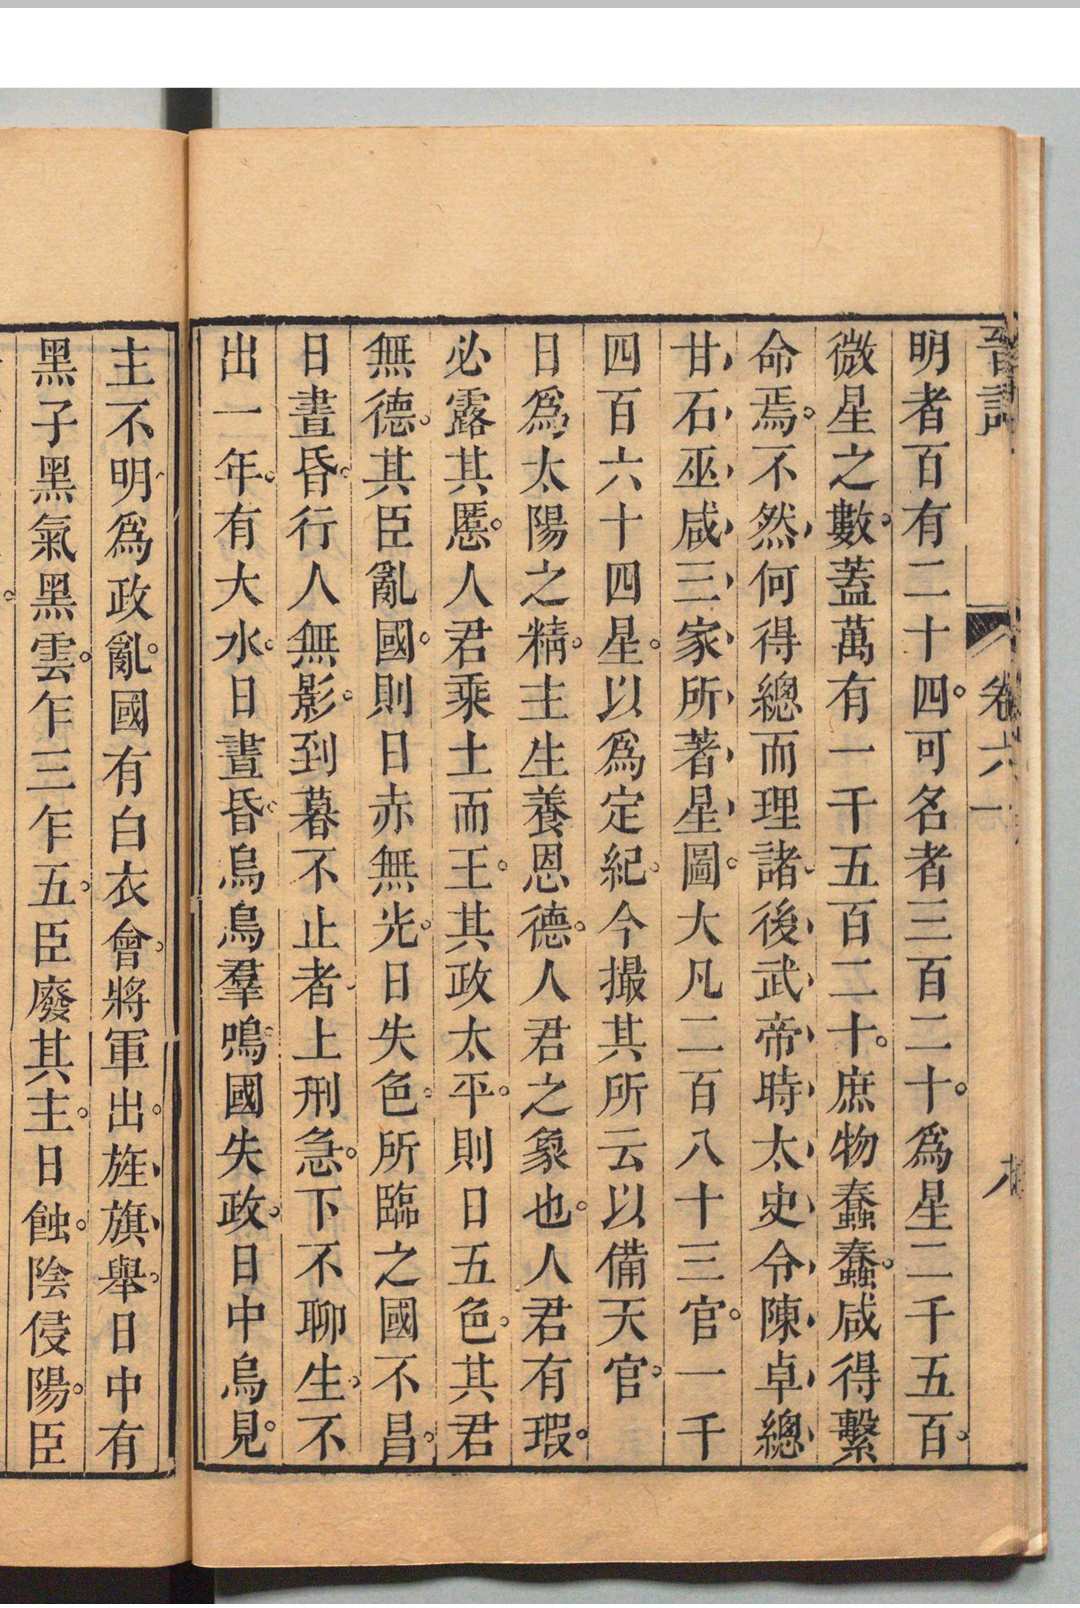 晉記
卷六 一
明者百有二十四。可名者三百二十。爲星二千五百。
微星之數。蓋萬有一千五百二十。庶物蠢蠢。咸得繫
命焉。不然何得總而理諸、後武帝時太史令陳卓總
甘石巫咸三家所著星圖。大凡二百八十三官。一千
四百六十四星。以爲定紀。今撮其所云以備天官。
日爲太陽之精。主生養恩德。人君之象也。人君有瑕。
必露其慝。人君乘土而王。其政太平。則日五色。其君
無德。其臣亂國。則日赤無光。日失色。所臨之國不昌。
日晝昏。行人無影。到暮不止者、上刑急。下不聊生。不
出一年。有大水。日晝昏。烏鳥羣鳴。國失政。日中烏見。
主不明、爲政亂。國有白衣會。將軍出。旌旗舉。日中有
黑子黑氣黑雲。乍三乍五。臣廢其主。日蝕。陰侵陽。臣